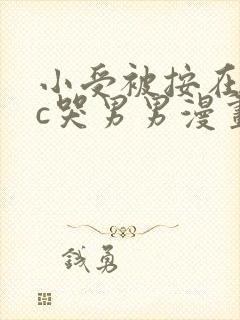 小受被按在
c哭男男漫畫
钱勇